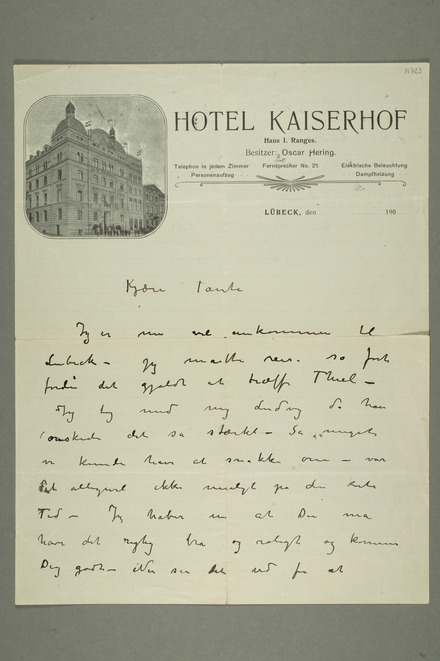 HOTEL KAISERHOF
Haus I. Ranges.
Besitzer: Oscar Hering.
Telephon in jedem Zimmer Fernsprecher No. 21. Elektrische Beleuchtung
Personenaufzug Dampfheizung
LÜBECK, den 190
Kjære Tante
Jeg er nu vel ankommen til
Lubeck – Jeg måtte reise så fort
fordi det gjaldt at træffe Thiel –
Jeg tog med mig Ludvig da han
ønskede det så stærkt – Så meget
vi kunde have at snakke om – var
det alligevel ikke muligt på den korte
Tid – Jeg håber nu at Du må
have det rigtig bra og roligt og komme
Dig godt – ser det ud for at